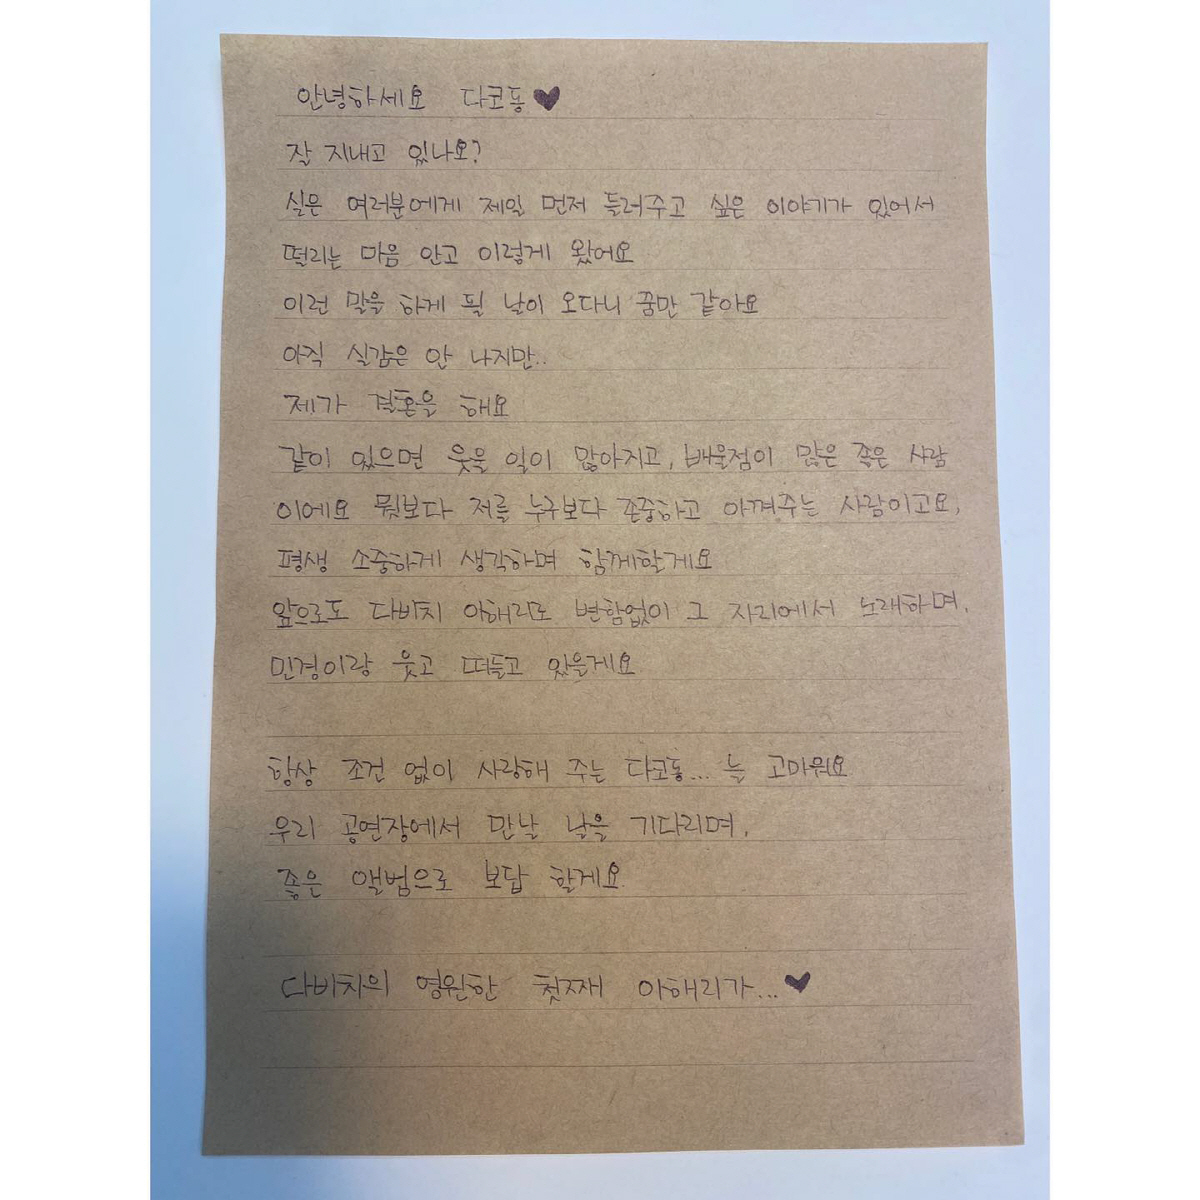 안녕하세요 다코동♥
잘 지내고 있나요?
실은 여러분에게 제일 먼저 들려주고 싶은 이야기가 있어서
떨리는 마음 안고 이렇게 왔어요
이런 말을 하게 될 날이 오다니 꿈만 같아요
아직 실감은 안 나지만..
제가 결혼을 해요
같이 있으면 웃을 일이 많아지고, 배울점이 많은 좋은 사람
이에요 뭣보다 저를 누구보다 존중하고 아껴주는 사람이고요,
평생 소중하게 생각하며 함께할게요
앞으로도 다비치 이해리로 변함없이 그 자리에서 노래하며,
민경이랑 웃고 떠들고 있을게요
항상 조건 없이 사랑해 주는 다코동... 늘 고마워요
우리 공연장에서 만날 날을 기다리며,
좋은 앨범으로 보답 할게요
다비치의 영원한 첫째 이해리가... ♥